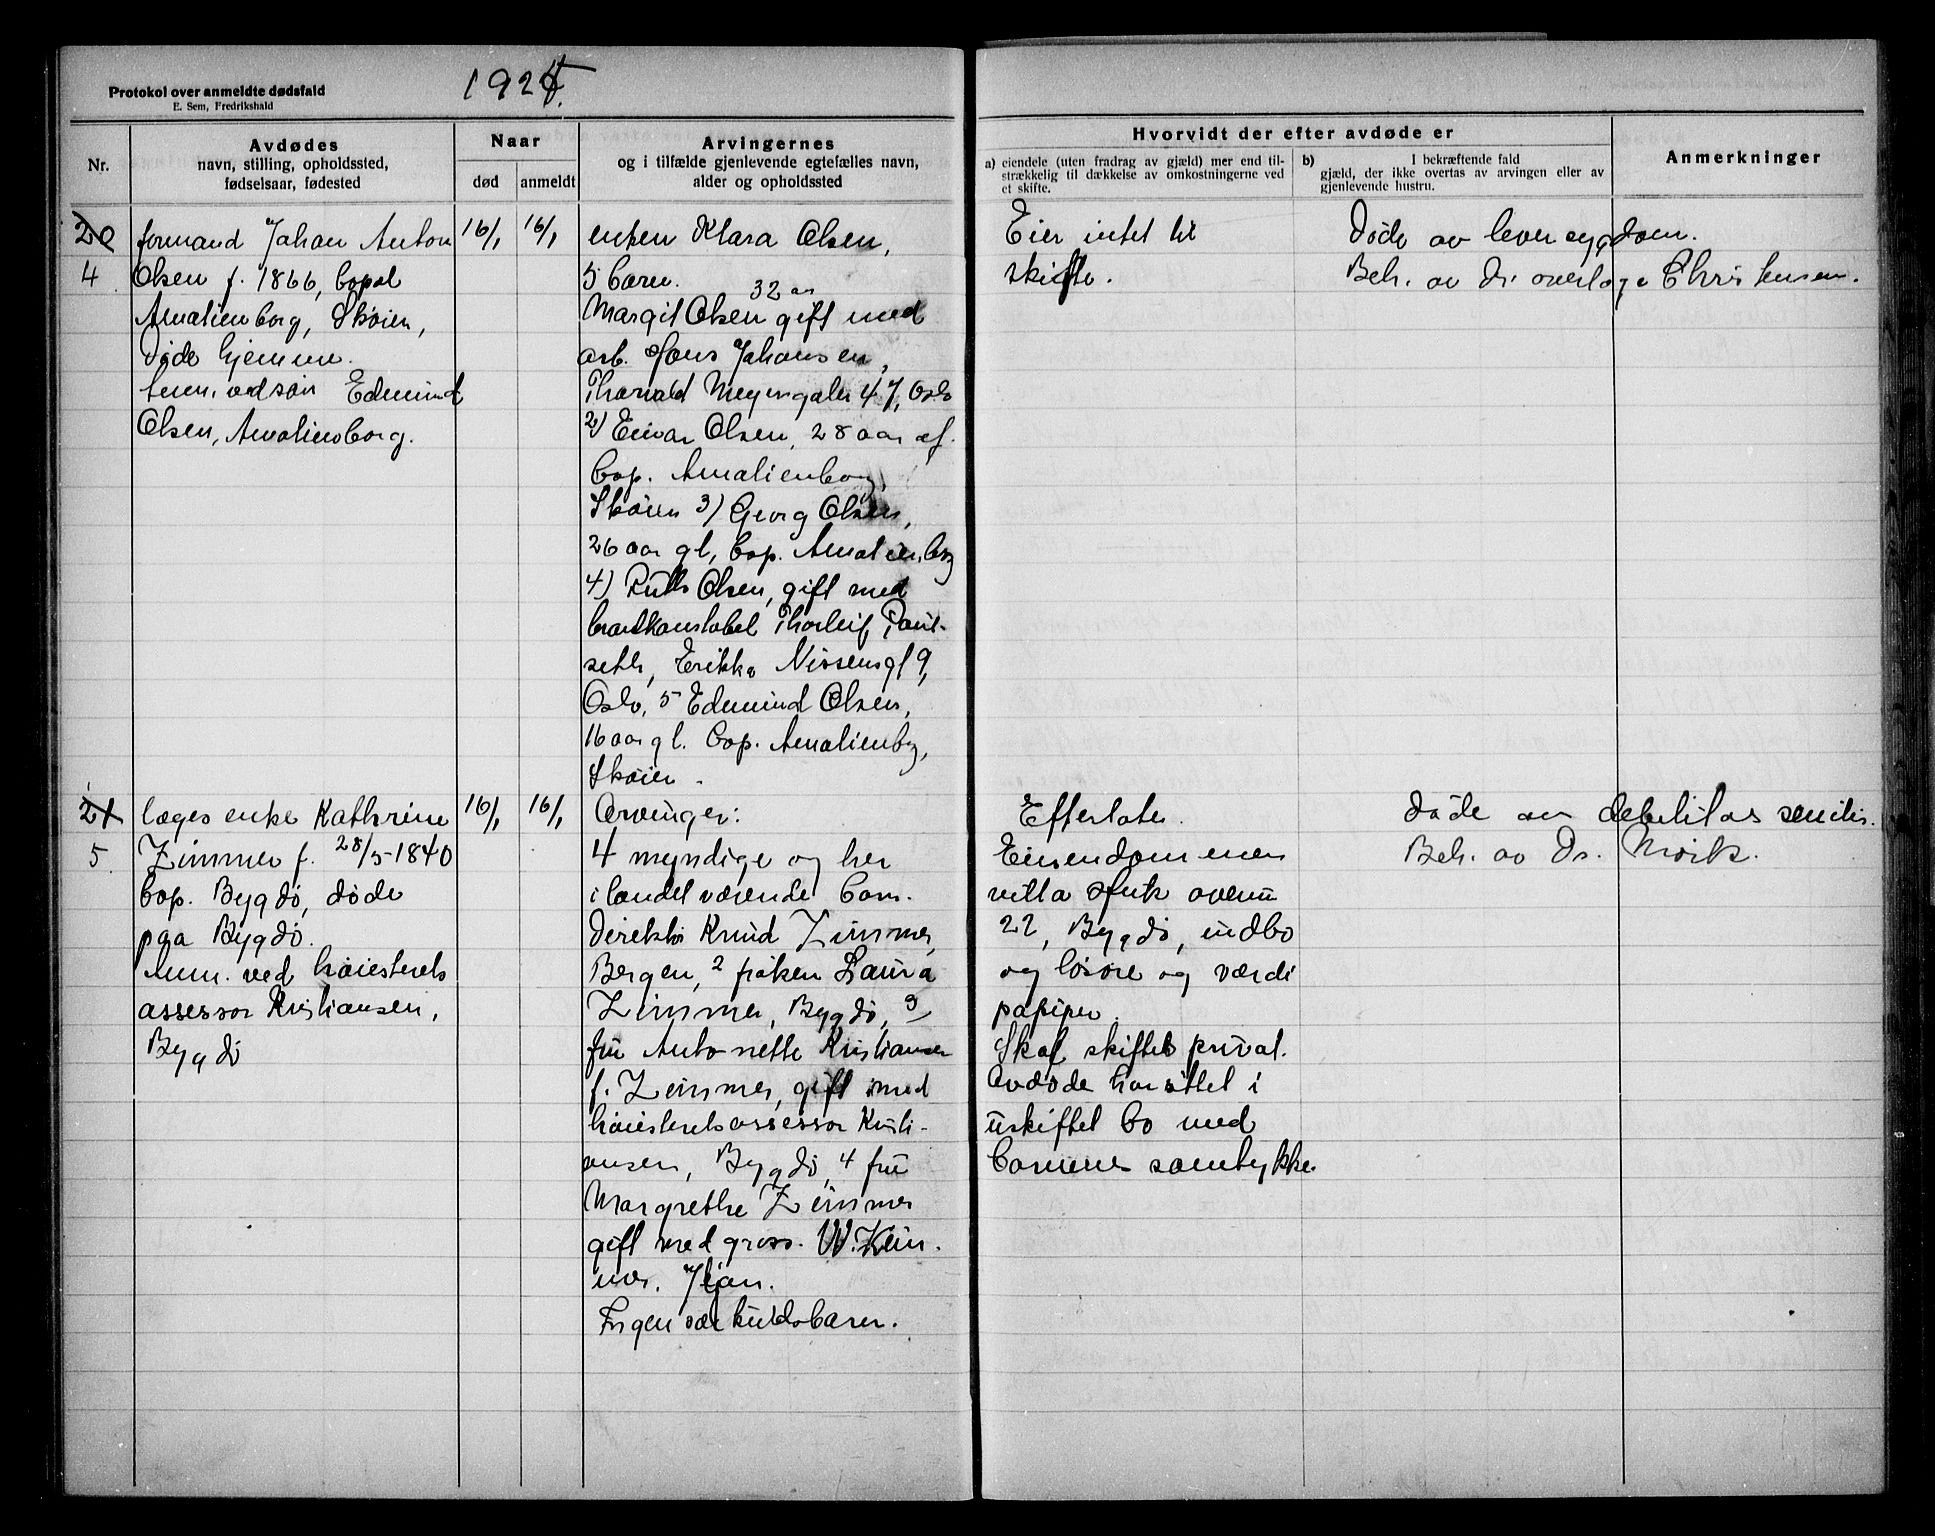 Protokol over anmeldte dødsfald
E. Sem, Fredrikshald
1924
Nr.
Avdødes
navn, stilling, opholdssted,
fødselsaar, fødested
Naar
død
anmeldt
Arvingernes
og i tilfælde gjenlevende egtefælles navn,
alder og opholdssted
Hvorvidt der efter avdøde er
a) eiendele (uten fradrag av gjæld) mer end til-
strækkelig til dækkelse av omkostningerne ved
et skifte.
b) I bekræftende fald
gjæld, der ikke overtas av arvingen eller av
gjenlevende hustru.
Anmerkninger
20
4
formand Johan Anton
Olsen f. 1866, bopæl
Amalienborg, Skøien,
døde hjemme.
ved søn Edmund
Olsen, Amalienborg.
16/1
16/1
enken Klara Olsen,
5 barn.
32 aar
Margit Olsen gift med
arb. Hans Johansen,
Thorvald Meyersgater 47, Oslo
2) Einar Olsen, 28 aar
bop. Amalienborg,
Skøien 3) Georg Olsen,
26 aar gl, bop. Amalienborg
4) Ruth Olsen, gift med
brandkonstabel Thorleif Paul-
seth, Erikka Nissensgt 9,
Oslo, 5 Edmund Olsen,
16 aar gl. bop. Amalienbg,
Skøien.
Eier intet til
skifte.
Døde av leversygdom.
Beh. av dr. overlæge Christensen.
21
5
læges enke Kathrine
Zimmer f. 28/5-1840
bop. Bygdø, døde
paa Bygdø.
Anm. ved høiesterets
assessor Kristiansen,
Bygdø
16/1
16/1
Arvinger:
4 myndige og her
i landet værende barn.
Direktør Knud Zimmer,
Bergen, 2 frøken Laura
Zimmer, Bygdø, 3)
fru Antonette Kristiansen
f. Zimmer, gift med
høiesteretsassessor Kristi-
ansen, Bygdø, 4 fru
Margrethe Zimmer
gift med gross. W.
Ingen særkuldsbarn.
Efterlater
Eiendommen
villa Huk aveny
22, Bygdø, indbo
og løsøre og værdi
papirer.
Skal skiftes privat.
Avdøde har sittet i
uskiftet bo med
barnenes samtykke.
døde av debilitas senilis.
Beh. av Dr. Mørk.